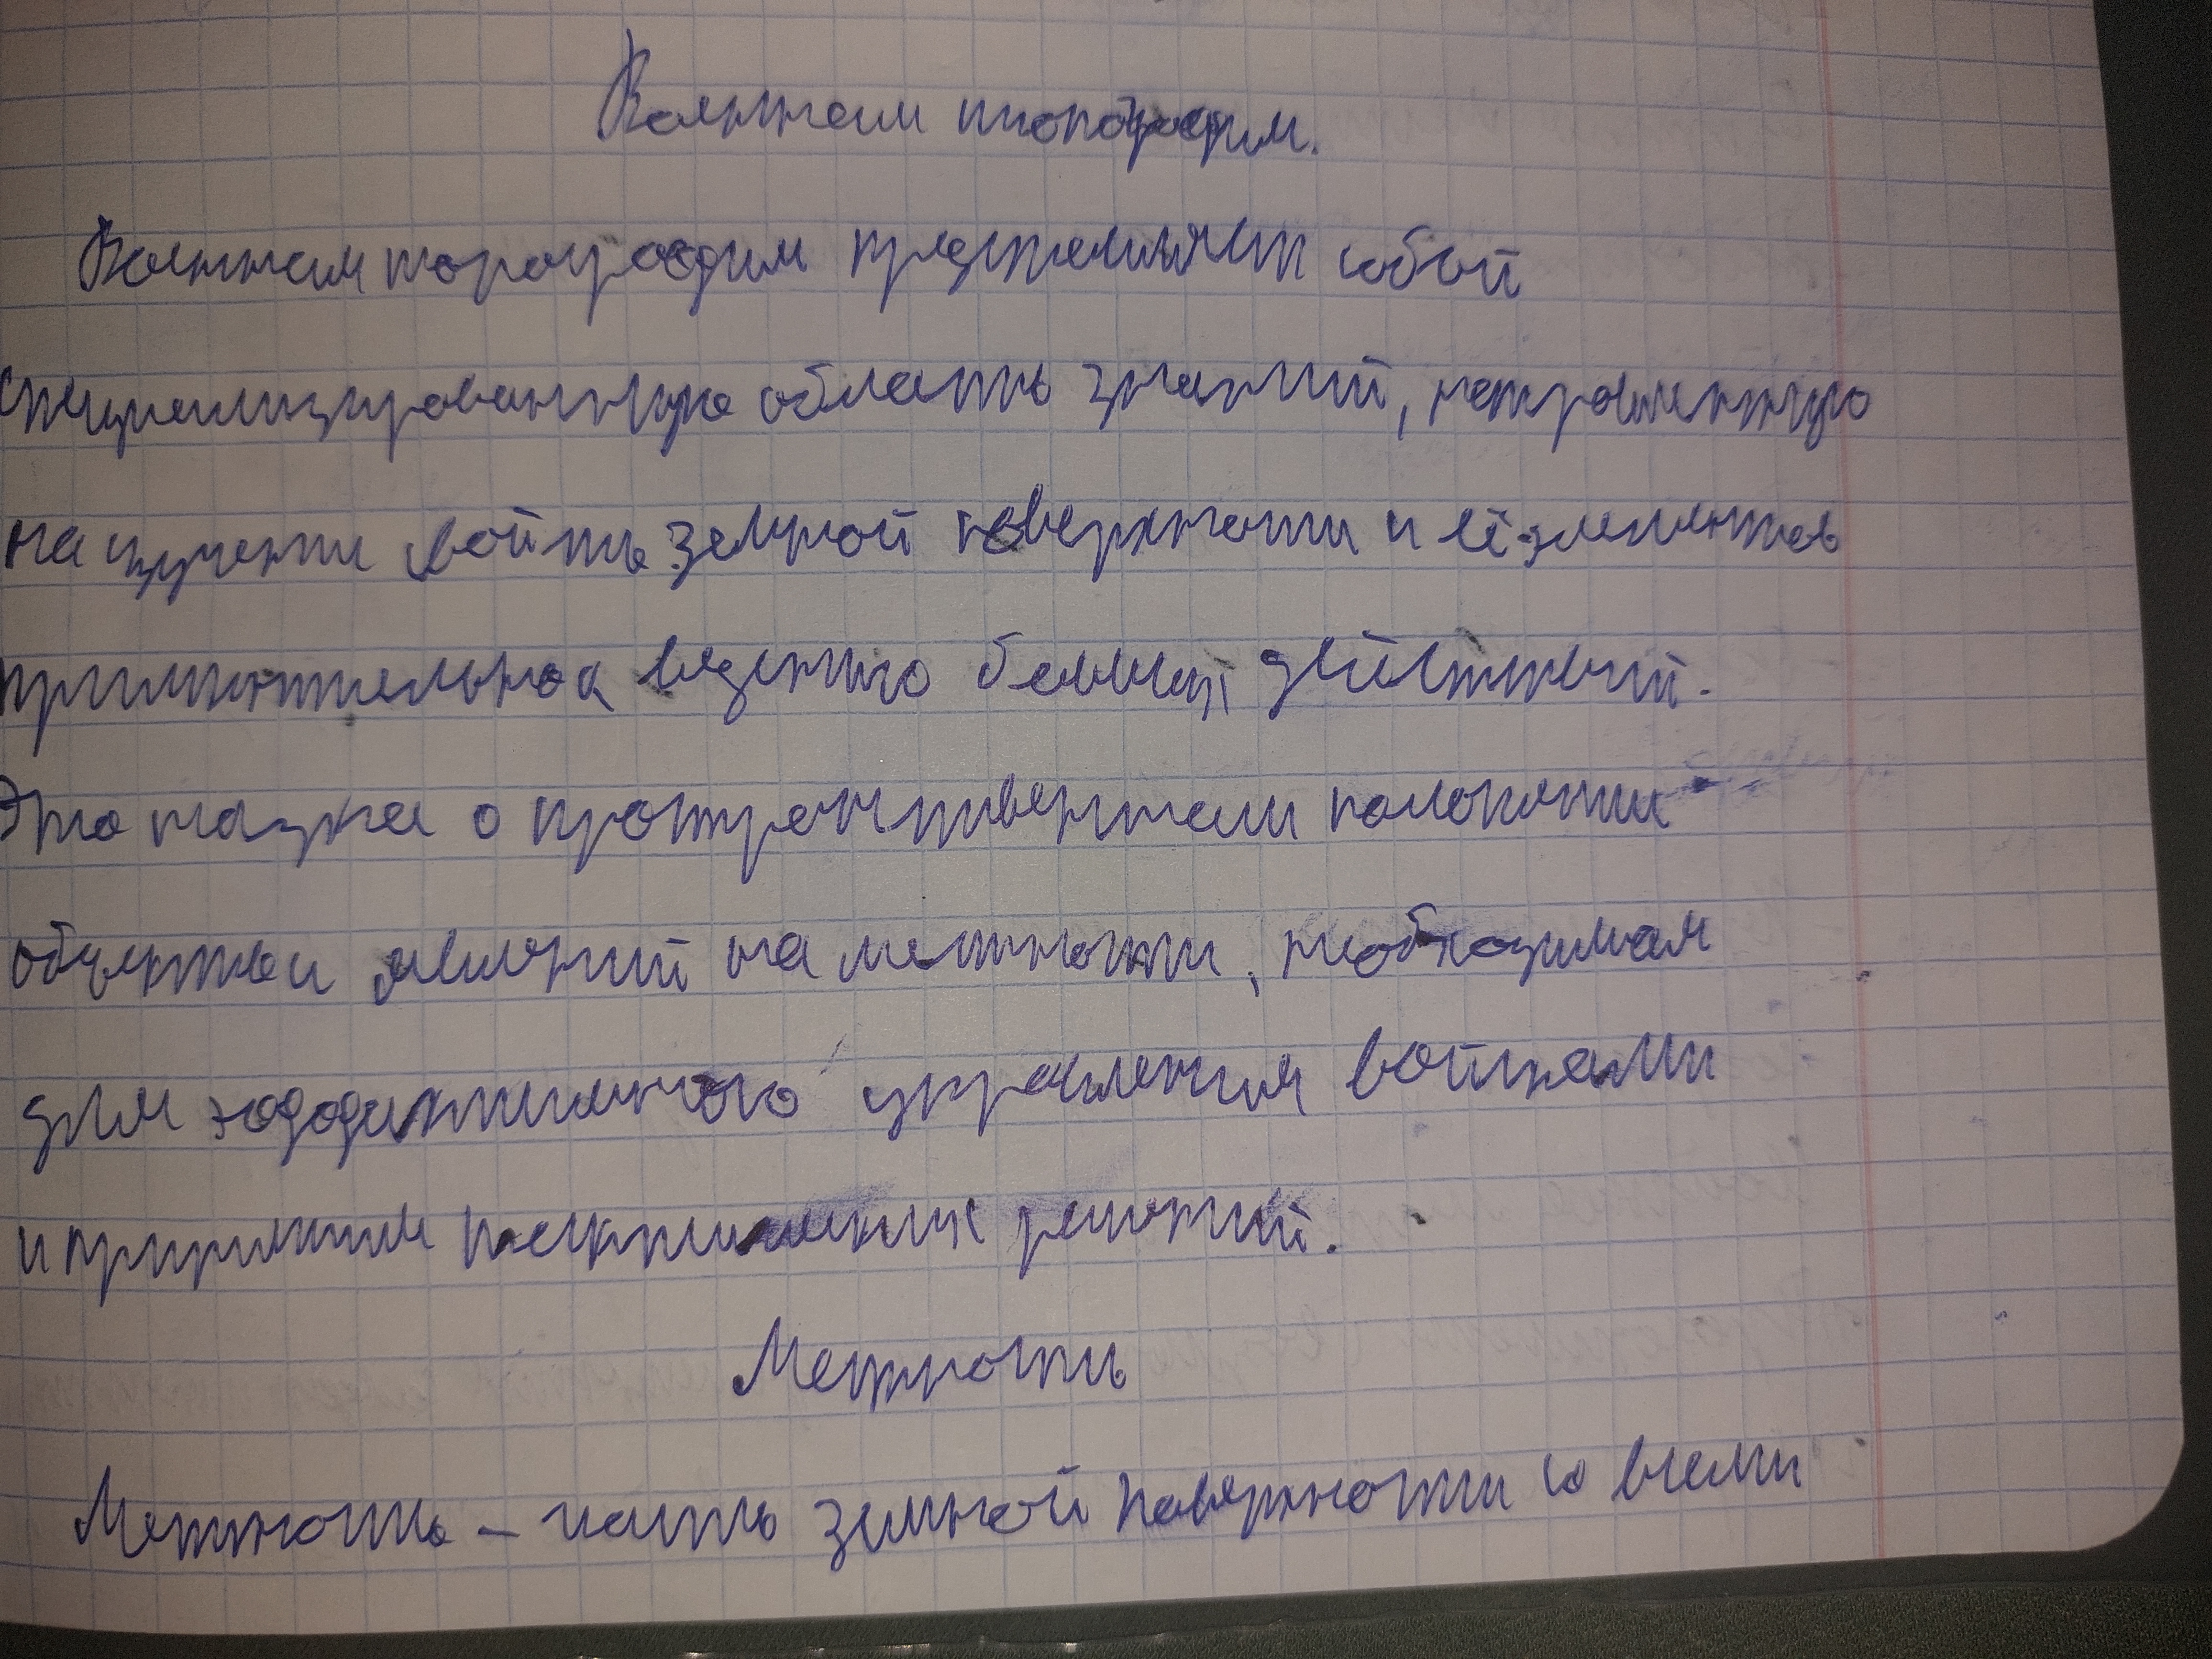 Военная топография.
Военная топография представляет собой
специализированную область знаний, направленную
на изучение свойств земной поверхности и её элементов
применительно к ведению боевых действий.
Это наука о пространственном положении
объектов и явлений на местности, необходимая
для эффективного управления войсками
и принятия тактических решений.
Местность
Местность – часть земной поверхности со всеми